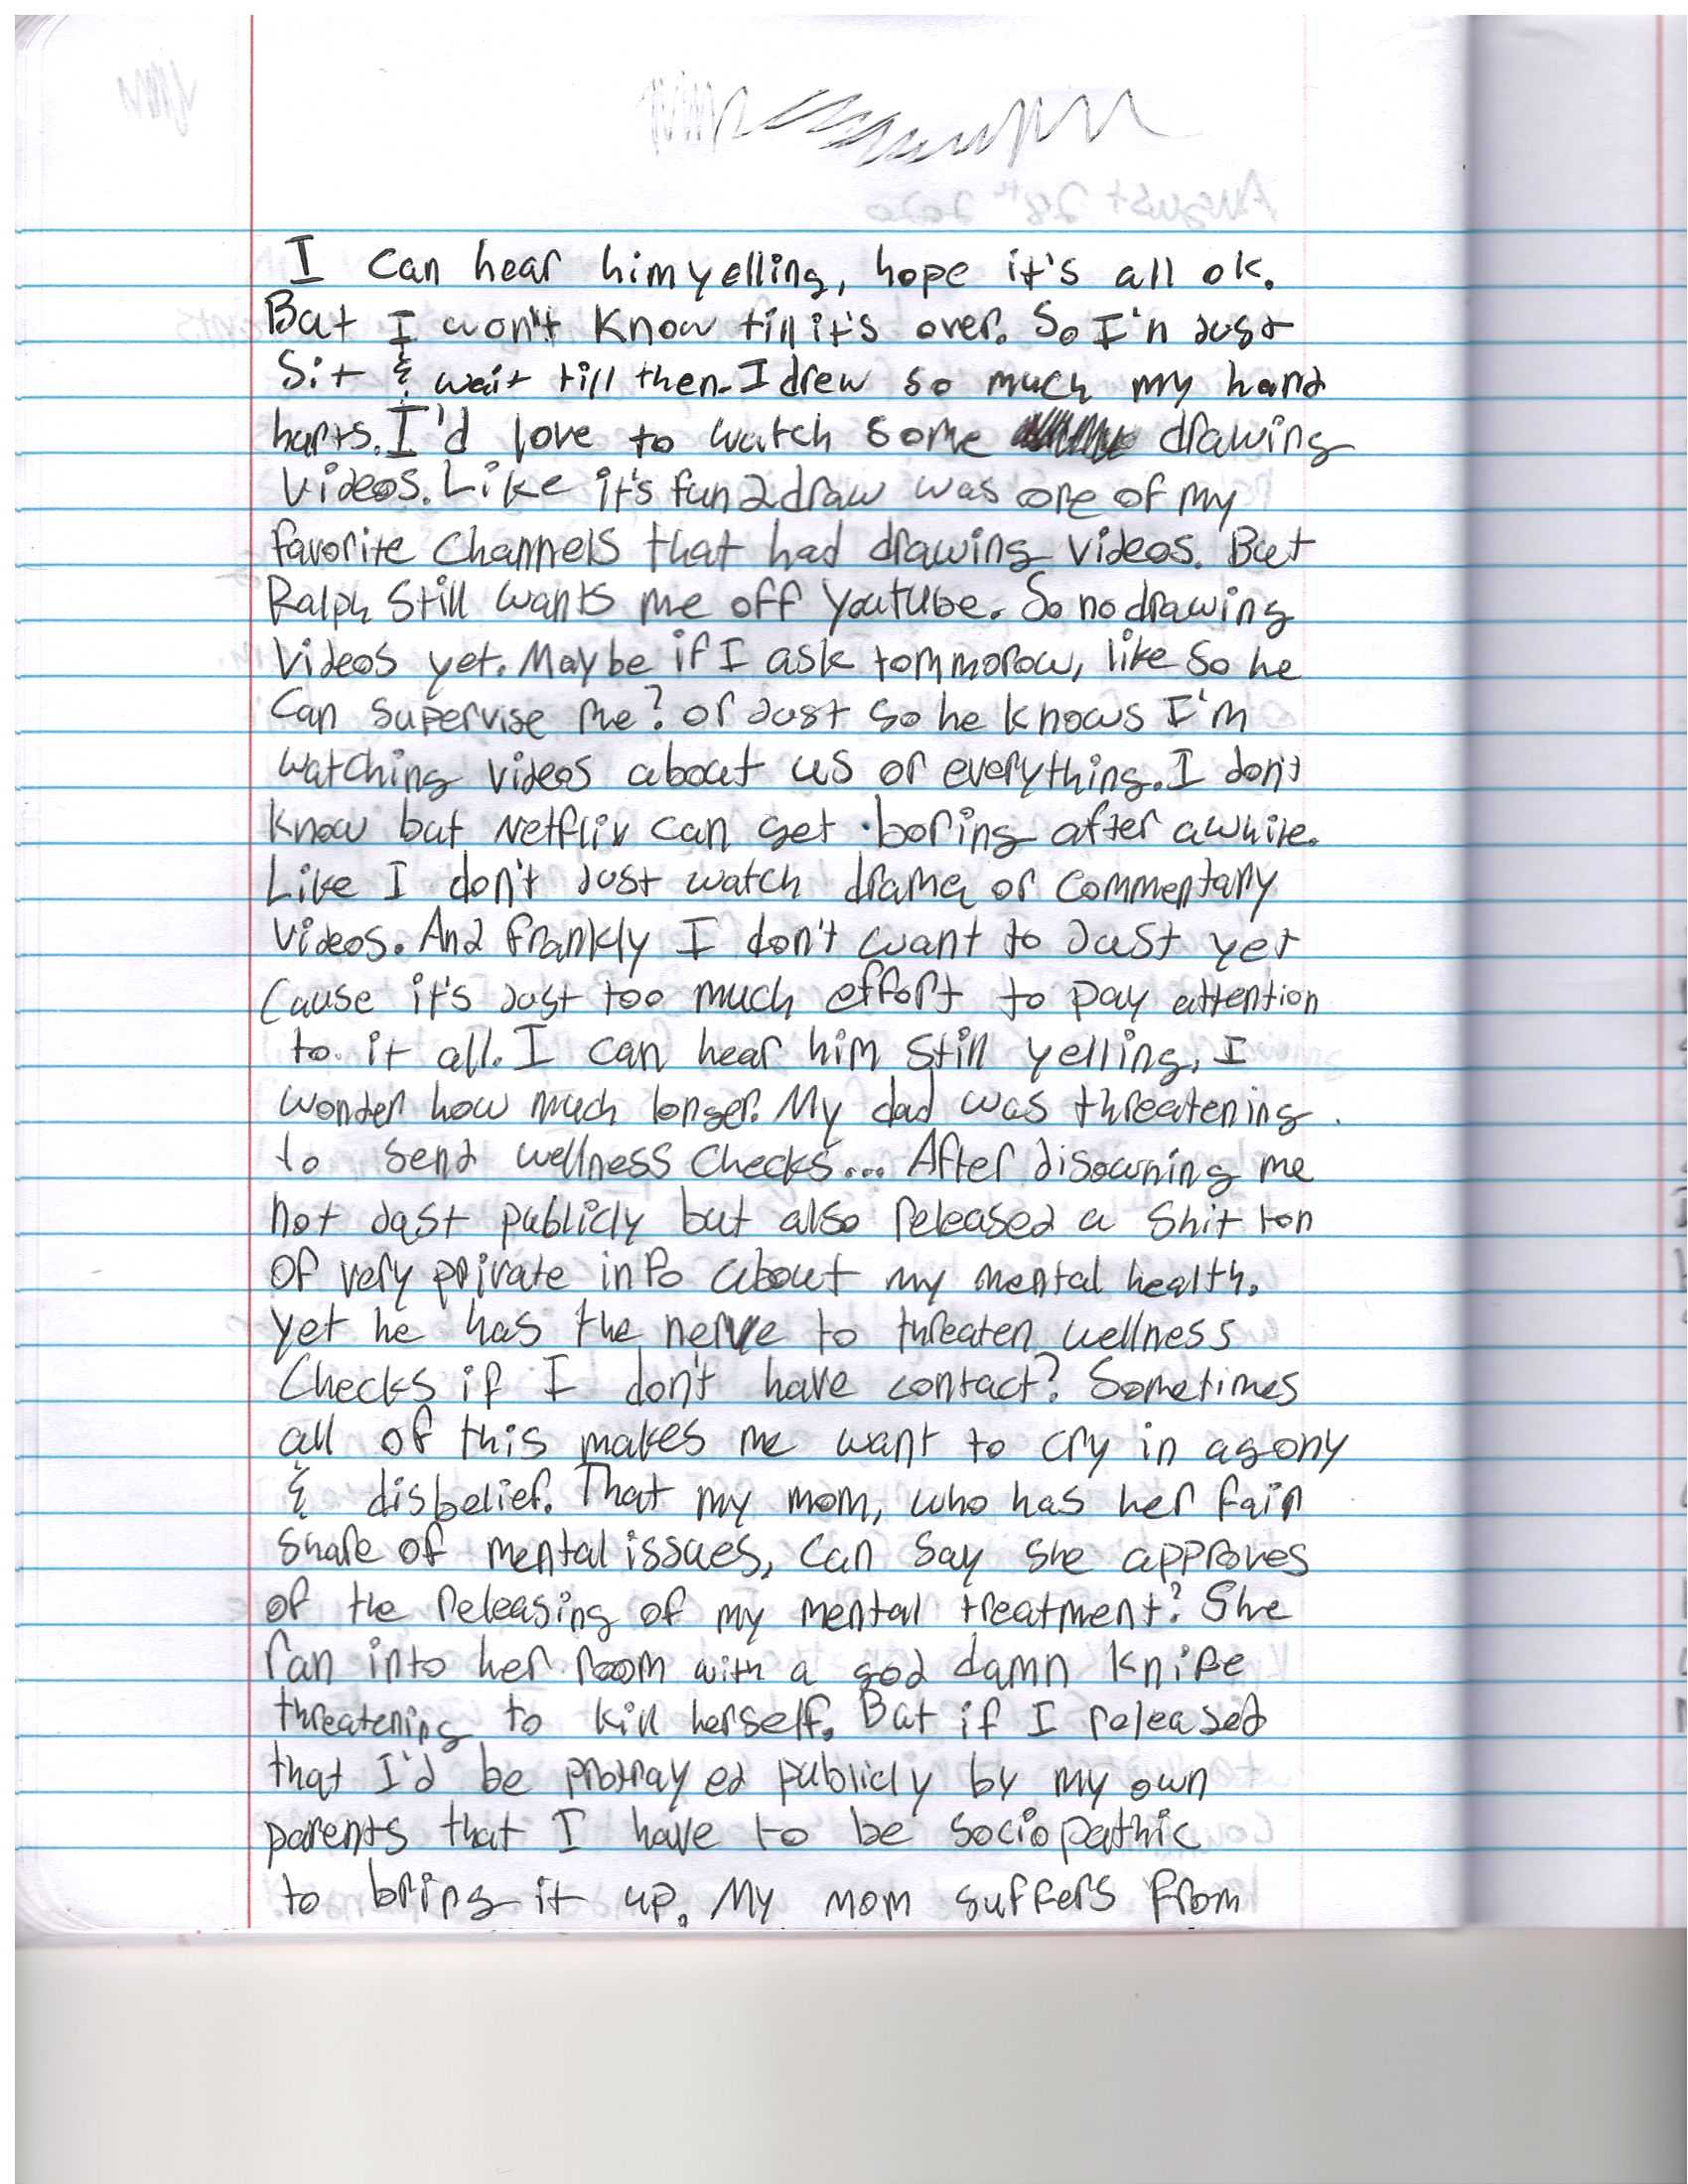 I can hear him yelling, hope it's all ok.
But I won't know till it's over. So I'n just
sit & wait till then. I drew so much my hand
hurts. I'd love to watch some drawing
videos. Like it's fun2draw was one of my
favorite channels that had drawing videos. But
Ralph still wants me off youtube. So no drawing
videos yet. Maybe if I ask tommorow, like so he
can supervise me? or just so he knows I'm
watching videos about us or everything. I don't
know but Netflix can get boring after awhile.
Like I don't just watch drama or commentary
videos. And frankly I don't want to just yet
cause it's just too much effort to pay attention
to it all. I can hear him still yelling, I
wonder how much longer. My dad was threatening
to send wellness checks... After disowning me
not just publicly but also released a shit ton
of very private info about my mental health.
yet he has the nerve to threaten wellness
checks if I don't have contact? Sometimes
all of this makes me want to cry in agony
& disbelief. That my mom, who has her fair
share of mental issues, can say she approves
of the releasing of my mental treatment? She
ran into her room with a god damn knife
threatening to kill herself. But if I released
that I'd be protrayed publicly by my own
parents that I have to be sociopathic
to bring it up. My mom suffers from
August 28th 2020